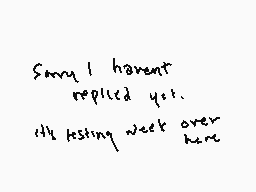 Sorry I havent
replied yet.
it's testing week over
here